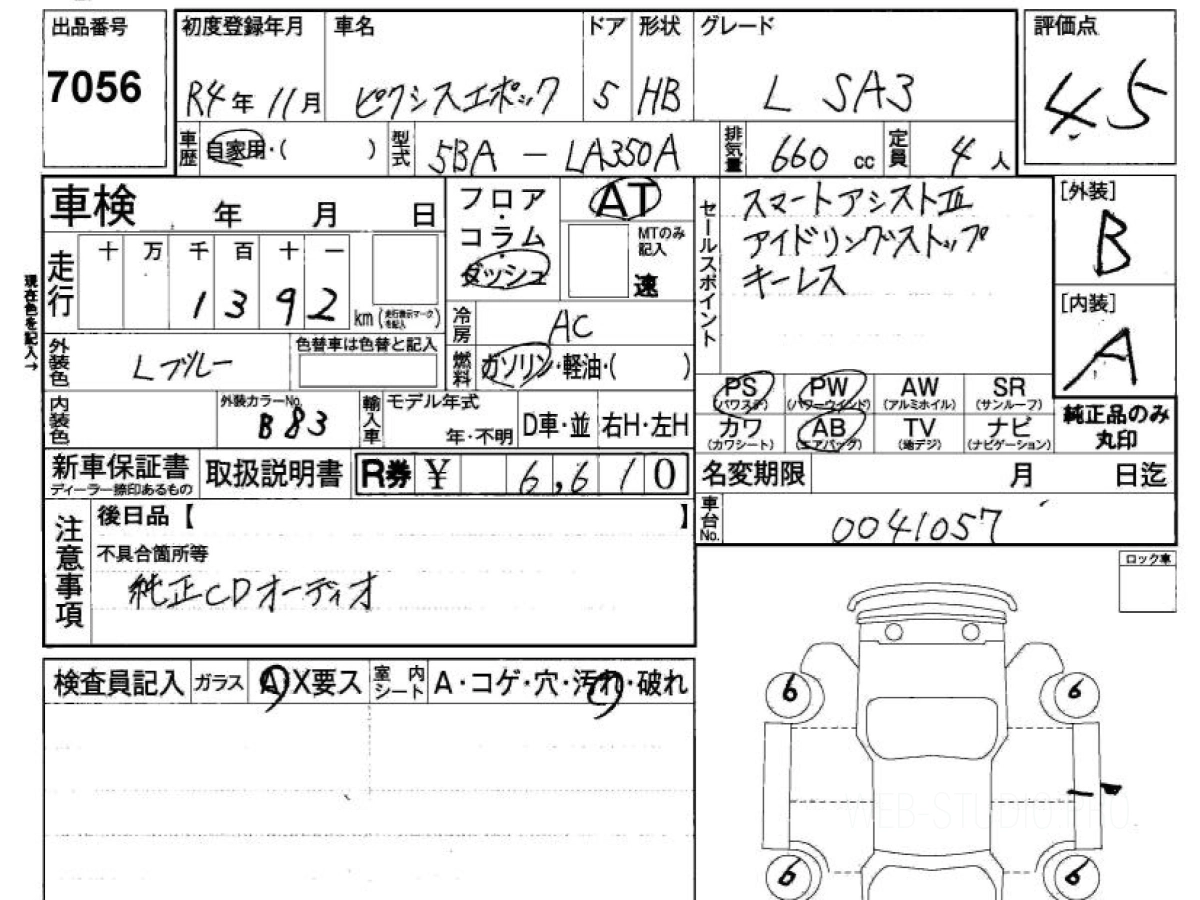 出品番号
7056
初度登録年月 車名 ドア 形状 グレード
R4年 11月 ピクシスエポック 5 HB L SA3
評価点
4.5
車歴 自家用・( ) 型式 5BA - LA350A 排気量 660 cc 定員 4 人
車検 年 月 日
フロア・コラム・ダッシュ
AT
MTのみ記入
速
走行 十 万 千 百 十 一
1392 km (走行表示マークを記入)
現在色を記入→
セールスポイント
スマートアシストⅢ
アイドリングストップ
キーレス
[外装]
B
[内装]
A
冷房 AC
燃料 ガソリン・軽油・( )
外装色 Lブルー
色替車は色替と記入
内装色
外装カラーNo. B83
輸入車 モデル年式 年・不明 D車・並 右H・左H
PS (パワステ) PW (パワーウインド) AW (アルミホイル) SR (サンルーフ)
カワ (カワシート) AB (エアバッグ) TV (地デジ) ナビ (ナビゲーション)
純正品のみ丸印
新車保証書 ディーラー捺印あるもの 取扱説明書 R券 ¥ 6,610
名変期限 月 日迄
車台No. 0041057
注意事項
後日品【 】
不具合箇所等
純正CDオーディオ
ロック車
検査員記入 ガラス A・X要ス 室内シート A・コゲ・穴・汚れ・破れ
6 6
WEB-STUDIO.PRO
6 6